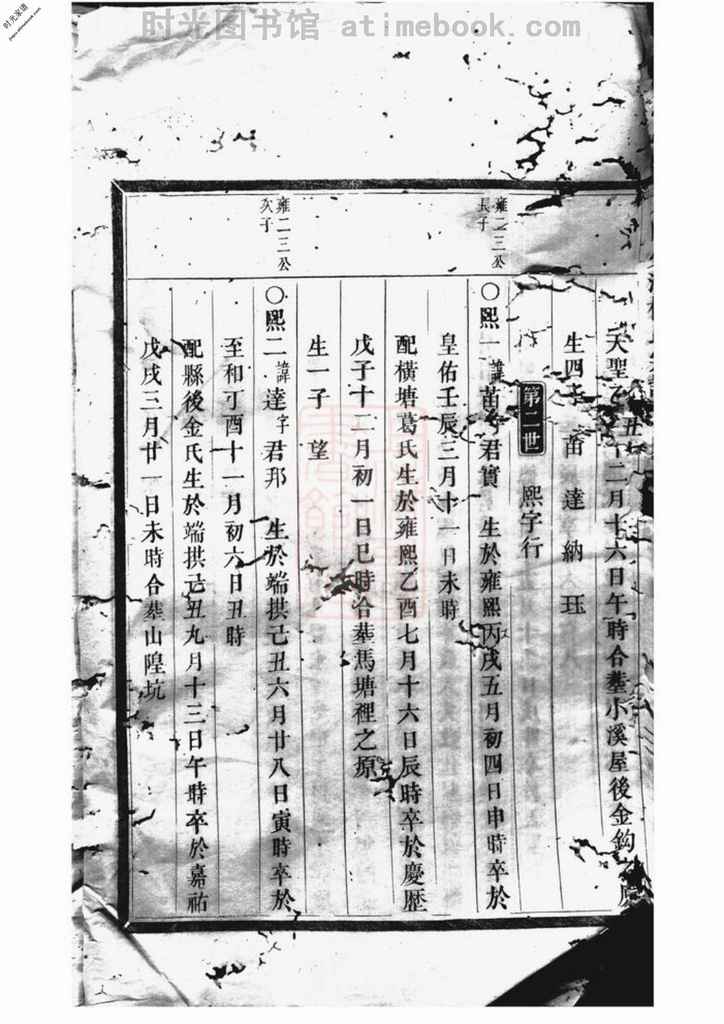 时光图书馆 atimebook.com
时光家谱
天聖乙丑十二月十六日午時合塟小溪屋後金鈎
生四子 苗 達 納 珏
第二世 熙字行
雍二三公
長子
〇熙一 諱苗字君實 生於雍熙丙戌五月初四日申時卒於
皇佑壬辰三月十一日未時
配橫塘葛氏生於雍熙乙酉七月十六日辰時卒於慶歷
戊子十二月初一日巳時合塟馬塘裡之原
生一子 望
雍二三公
次子
〇熙二 諱達字君邦 生於端拱己丑六月廿八日寅時卒於
至和丁酉十一月初六日丑時
配縣後金氏生於端拱己丑九月十三日午時卒於嘉祐
戊戌三月廿一日未時合塟山隍坑